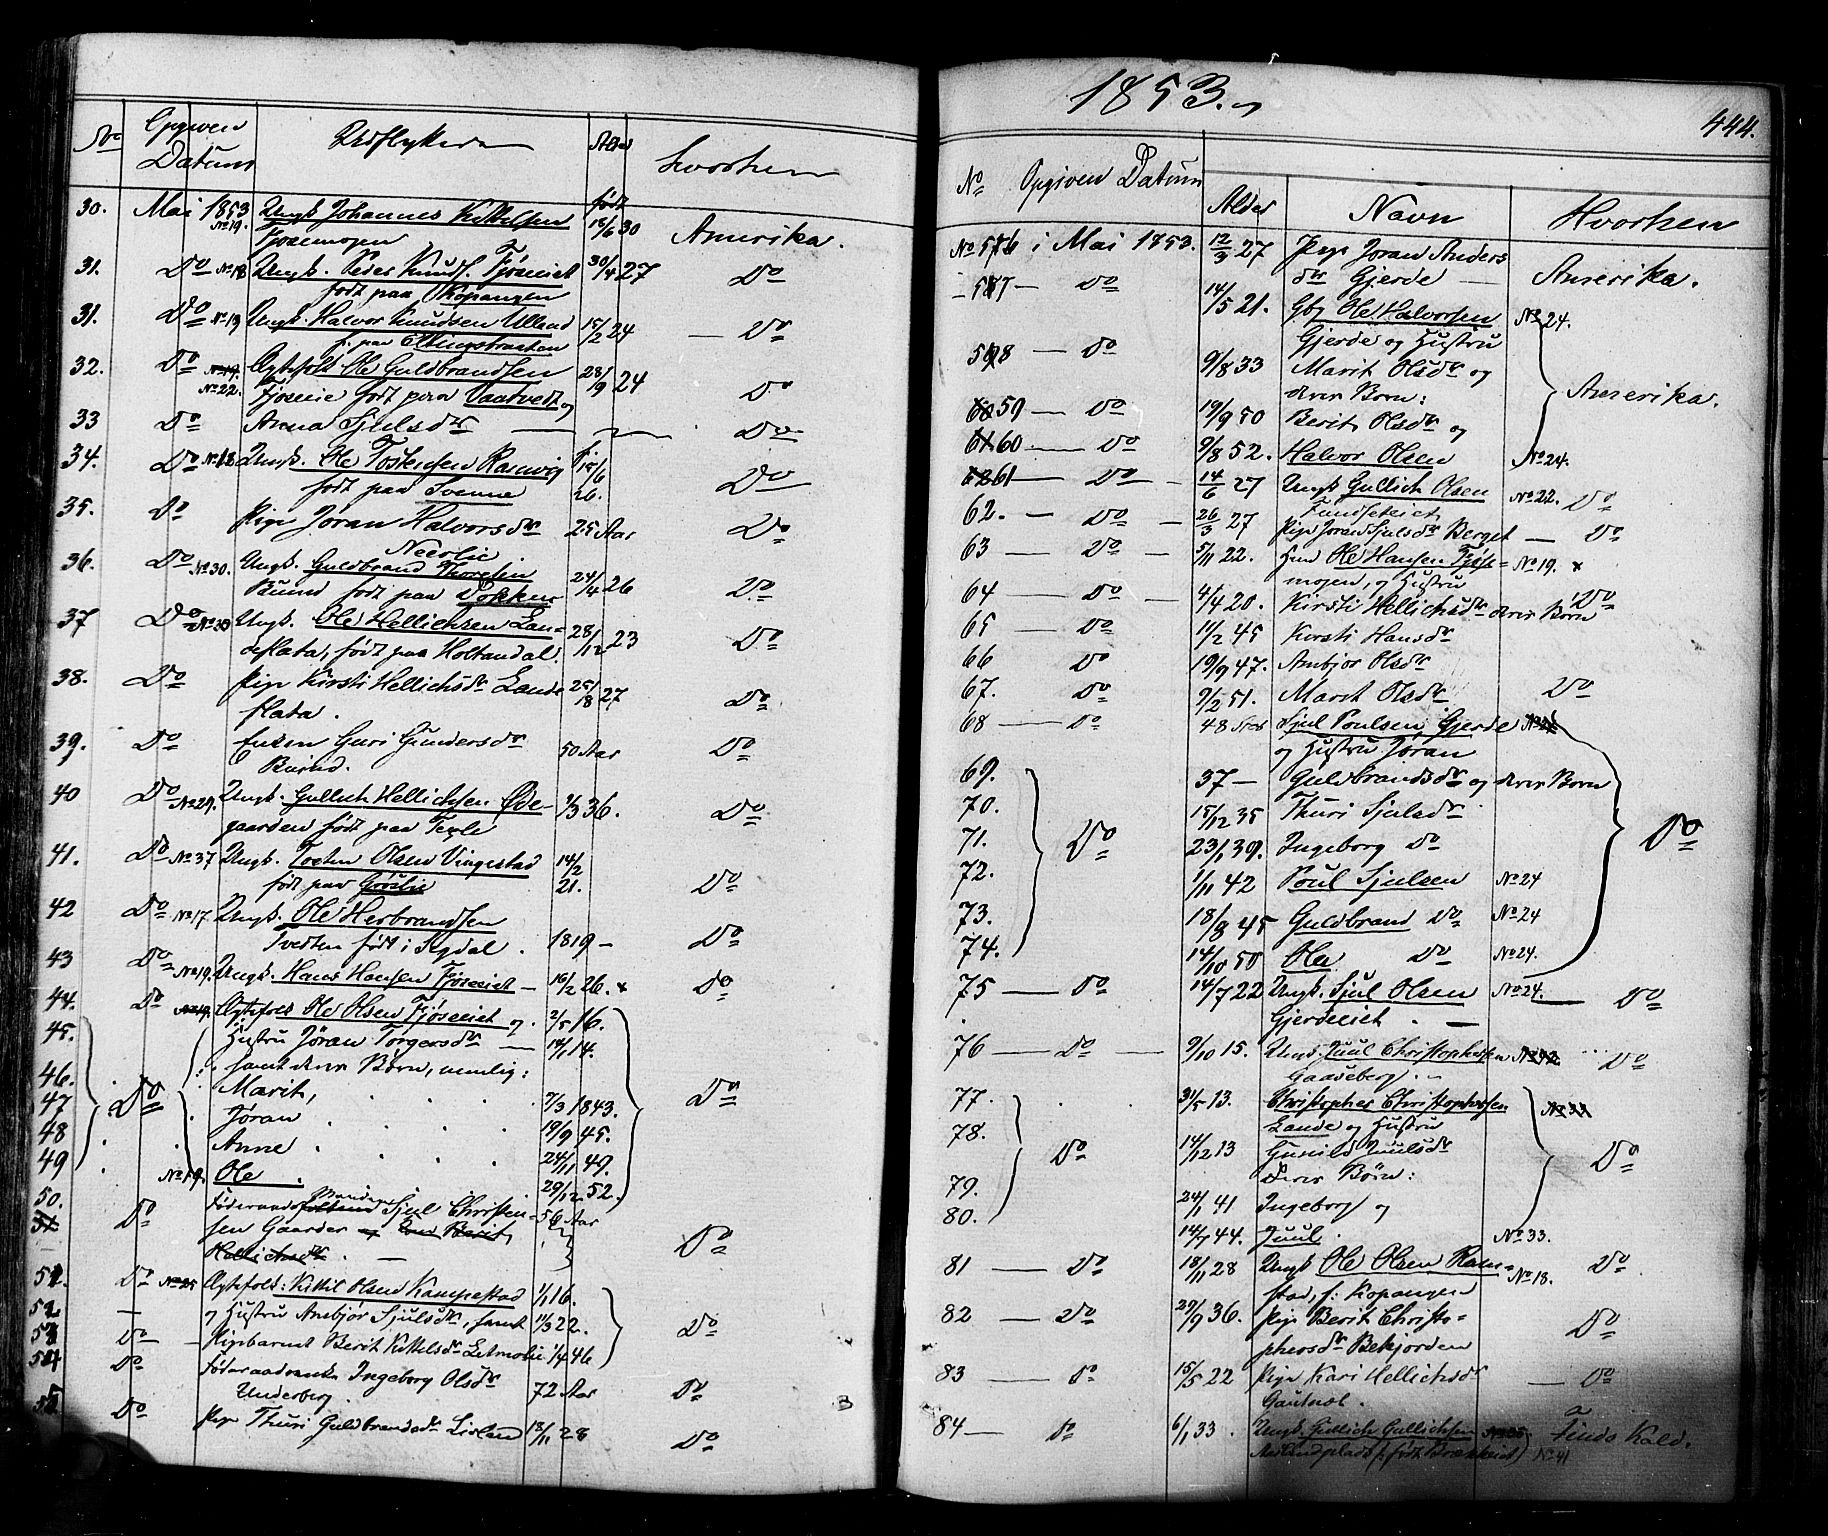 No Opgiven Datum Udflyttere Alder hvorhen
30. Mai 1853 No 19. Ungk. Johannes Kittilsen født 16/6 30 Amerika.
Fjøsemogen
31. Do No 18 Ungk. Peder Knuds. Fjøseeiet 30/4 27 Do
født paa Kopangen
31. Do No 13 Ungk. Halvor Knudsen Ulland 15/2 24 Do
32. Do No 19. Ægtefolk Ole Guldbrandsen 28/9 24 Do
No 22. Fjøseeie født paa Vaatvedt og
33 Do Anna Sjulsdr Do
34. Do No 18 Ungk. Ole Tostensen Ramvig f. 15/6 Do
født paa Svenne 26.
35. Do Pige Jøran Halvorsdr 25 Aar Do
Neerlie
36. Do No 30. Ungk. Guldbrand Thoresen 24/4 26 Do
Buind født paa Dokken
37 Do No 30 Ungk. Ole Hellichsen Lan- 28/12 23 Do
deflata, født paa Holtandal.
38. Do Pige Kirsti Hellichsdr Lande 27 Do
flata.
39. Do Enken Guri Gundersdr 50 Aar Do
Buind.
40 Do No 29. Ungk. Gullich Hellichsen Øde- 9/3 36. Do
gaarden født paa Texle
41. Do No 37 Ungk. Tosten Olsen Vingestad 14/2 Do
født paa Grøslie 21.
42 Do No 17. Ungk. Ole Herbrandsen
Tvedten født i Sigdal. 1819 – Do
43 Do No 19. Ungk. Hans Hansen Fjøseeiet – 16/2 26. x Do
44. Do No 19. Ægtefolk Ole Olsen Fjøseeiet og 2/5 16.
45. Hustru Jøran Torgersdr 14/11 14.
samt deres Børn, nemlig:
46. Do Marit, 7/3 1843. Do
47 Jøran 19/9 45.
48 Anne 24/11 49.
49 No 19. Ole 29/12 52.
50. Føderaads Manden Sjul Christen- 56 Aar
51 Do sen Gaarder og Berit Do
Hellichsdr. –
51. Do No 25 Ægtefolk: Kittil Olsen Kampestad 1/1 16.
52. – og Hustru Ambjør Sjulsdr, samt 11/3 22. Do
53 Do – Pigebarnet Berit Kittelsdr 1/4 46
54 Do Føderaadsenke Ingeborg Olsdr 72 Aar Do
Underberg
55 Do Pige Thuri Guldbrandsdr Lisland 13/11 28 Do
1853.
444.
No Opgiven Datum Alder Navn Hvorhen
No 56 i Mai 1853. 12/3 27 Pige Joran Anders
dr Gjerde – Amerika.
57 – Do 14/5 21. Gbr Ole Halvorsen No 24.
Gjerde og Hustru
58 – Do 9/8 33 Marit Olsdr og Amerika.
deres Børn:
59 – Do 19/9 50 Berit Olsdr og
60 – Do 9/8 52. Halvor Olsen No 24.
61 – Do – 14/6 27 Ungk Gullich Olsen No 22. Do
62. – Do – 26/3 27 Pige Joran Sjulsdr Berget – Do
63 – Do – 5/11 22. Ole Hansen Fjøse- No 19. x
mogen, og Hustru
64 – Do – 4/4 20. Kirsti Hellichsdr deres Børn Do
65 Do 11/2 45 Kirsti Hansdr
66 Do 19/9 47. Ambjør Olsdr
67. Do 9/2 51. Marit Olsdr Do
68 – Do 48 Aar Sjul Poulsen, Gjerde No 24
og Hustru Jøran
69. 37 – Guldbrandsdr og deres Born
70. 15/12 35 Thuri Sjulsdr
71. Do 23/1 39. Ingeborg Do Do
72. 1/11 42 Poul Sjulsen No 24
73. 18/8 45 Guldbrand Do No 24
74. 14/10 50 Ole Do No 24.
75 – Do 14/7 22 Ungk. Sjul Olsen No 24. – Do
Gjerdeeiet. –
76 – Do – 9/10 15. Ungk. Juul Christophersen Do
Gaaseberg.
77. 31/5 13. Christopher Christophersen No 33
Lande og Hustru
78. Do 14/12 13 Gunild Juulsdr Do
Deres Børn:
79. 24/1 41 Ingeborg og
80. 14/7 44. Juul. No 33.
81 – Do 18/11 28 Ungk Ole Olsen Ram- No 18. Do
stad, f: Kopangen
82 – Do 29/9 36. Pige Berit Christo- Do
phersdr Bekjorden
83 – Do 15/5 22 Pige Kari Hellichsdr – Do
84 – Do 6/1 33. Ungk. Gullich Gullichsen No 25.
No 41